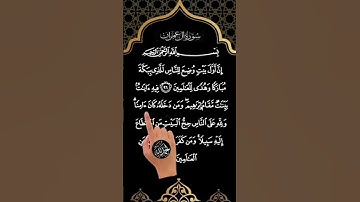 سورة آل عمران
بِسْمِ اللَّهِ الرَّحْمَٰنِ الرَّحِيمِ
إِنَّ أَوَّلَ بَيْتٍ وُضِعَ لِلنَّاسِ لَلَّذِي بِبَكَّةَ
مُبَارَكًا وَهُدًى لِّلْعَالَمِينَ ﴿٩٦﴾ فِيهِ ءَايَٰتٌۢ
بَيِّنَٰتٌ مَّقَامُ إِبْرَٰهِيمَ ۖ وَمَن دَخَلَهُۥ كَانَ ءَامِنًا ۗ
وَلِلَّهِ عَلَى النَّاسِ حِجُّ الْبَيْتِ مَنِ اسْتَطَاعَ
إِلَيْهِ سَبِيلًا ۚ وَمَن كَفَرَ
الْعَٰلَمِينَ